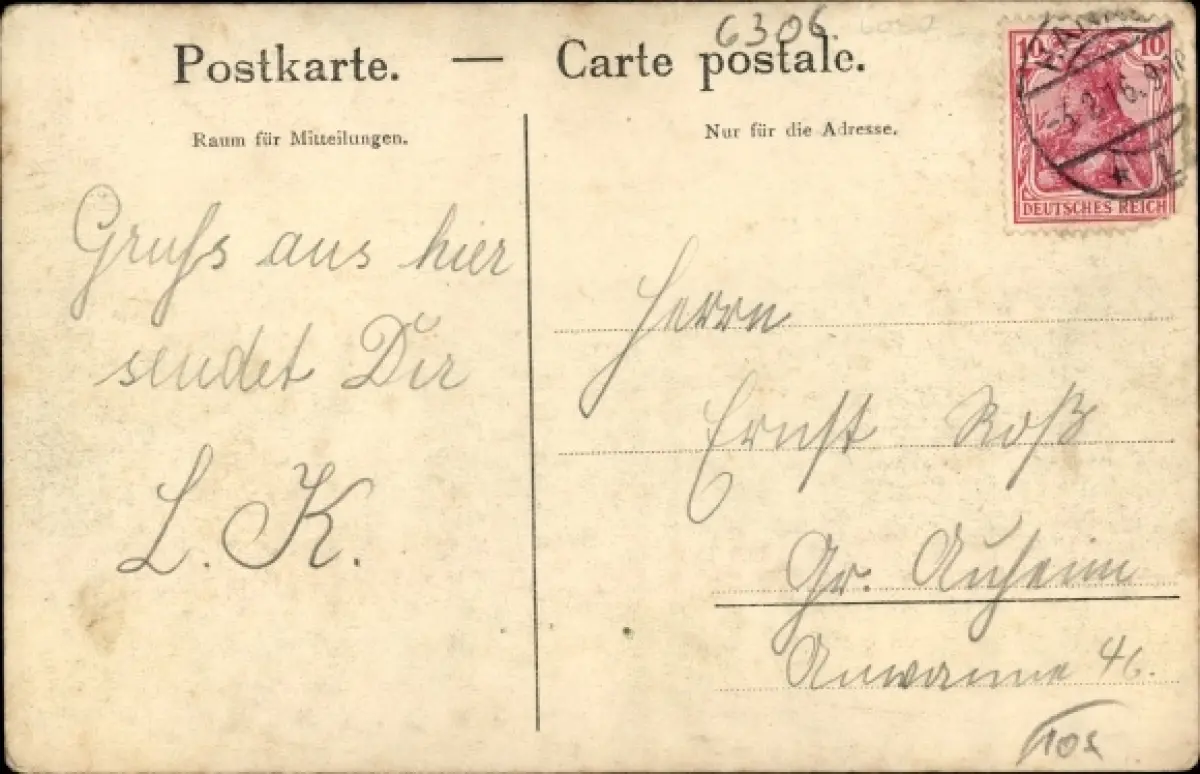 6306.
Postkarte. — Carte postale.
Raum für Mitteilungen.
Nur für die Adresse.
10 10
DEUTSCHES REICH
Gruss aus hier
sendet Dir
L. K.
Herrn
Ernst Roß
Gr. Auheim
46.